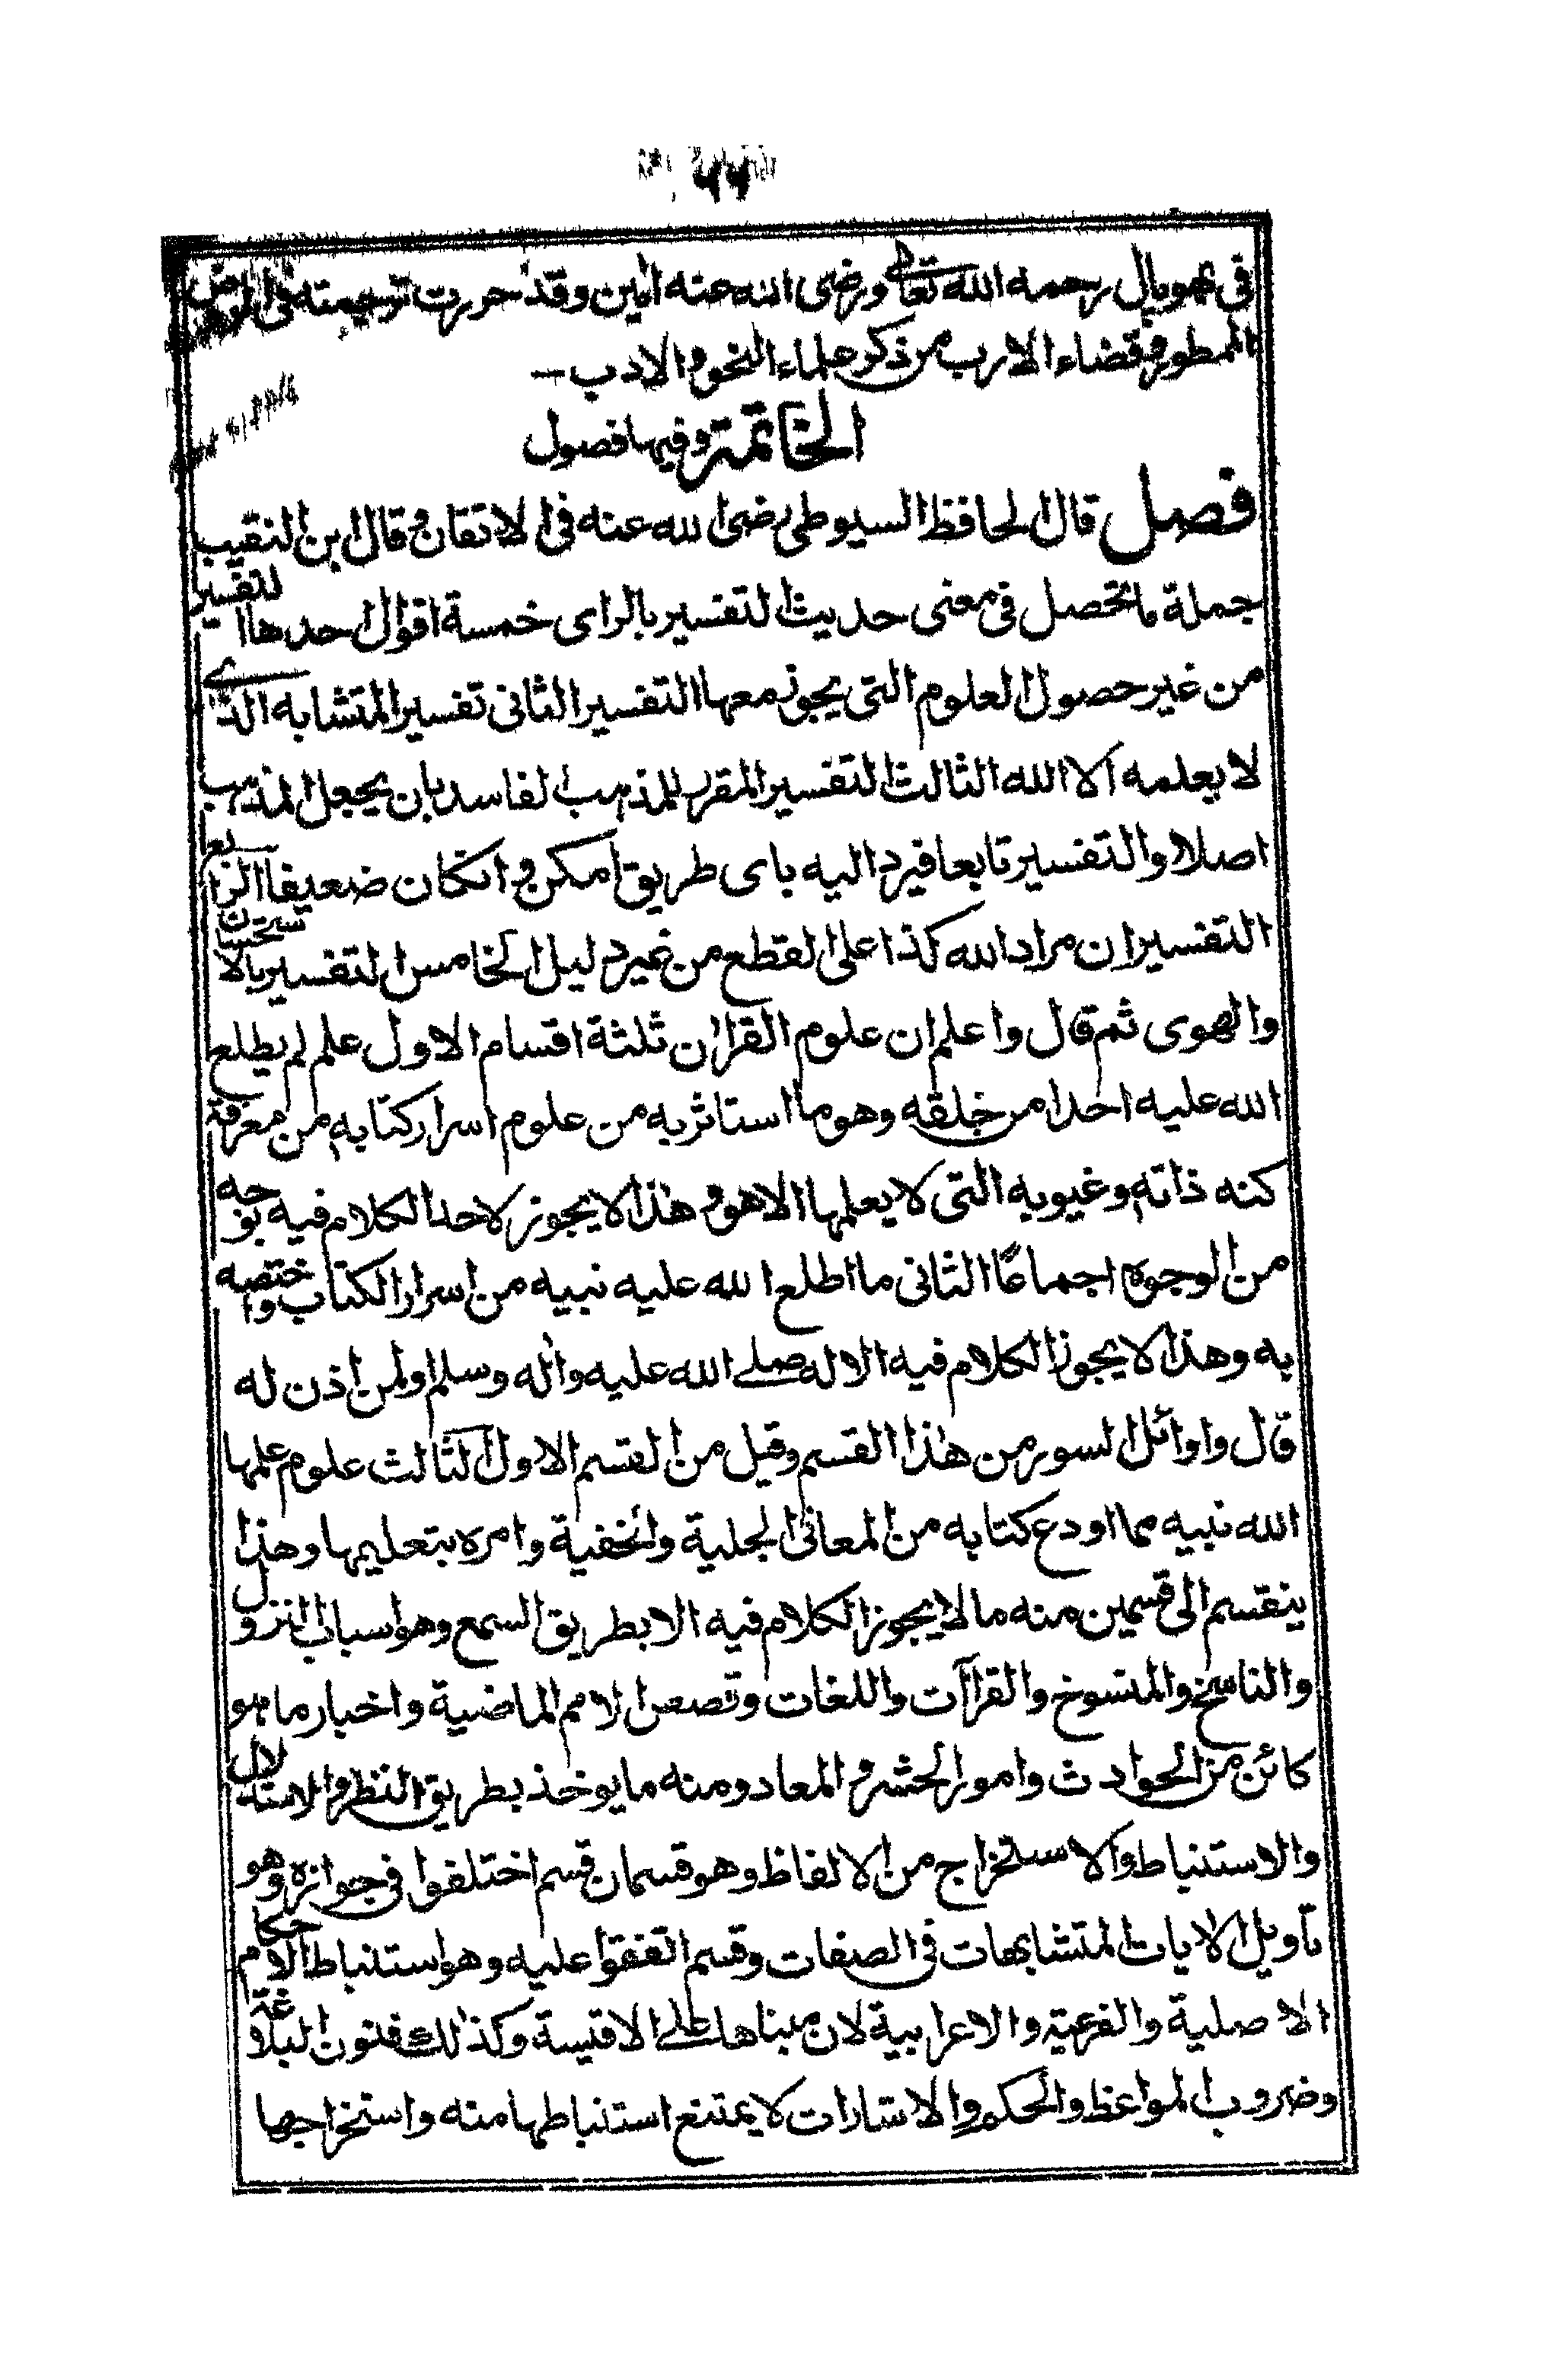 ٦٦
فى بهوپال رحمه الله تعالى ورضى الله عنه امين وقد حررت ترجمته فى الروض
الممطور وقضاء الارب من ذكر علماء النحو والادب —
الخاتمة وفيها فصول
فصل قال الحافظ السيوطى رضى الله عنه فى الاتقان وقال ابن النقيب
جملة ما تحصل فى معنى حديث التفسير بالراى خمسة اقوال احدها التفسير
من غير حصول العلوم التى يجوز معها التفسير الثانى تفسير المتشابه الذى
لا يعلمه الا الله الثالث التفسير المقرر للمذهب الفاسد بان يجعل المذهب
اصلا والتفسير تابعا فيرد اليه باى طريق امكن وانكان ضعيفا الرابع
التفسير ان مراد الله كذا على القطع من غير دليل الخامس التفسير بالاستحسان
والهوى ثم قال واعلم ان علوم القران ثلثة اقسام الاول علم لم يطلع
الله عليه احدا من خلقه وهو ما استاثر به من علوم اسرار كتابه من معرفة
كنه ذاته وغيوبه التى لا يعلمها الا هو وهذا لا يجوز لاحد الكلام فيه بوجه
من الوجوه اجماعًا الثانى ما اطلع الله عليه نبيه من اسرار الكتاب واختصه
به وهذا لا يجوز الكلام فيه الا له صلے الله عليه واله وسلم او لمن اذن له
قال واوائل السور من هذا القسم وقيل من القسم الاول الثالث علوم علمها
الله نبيه مما اودع كتابه من المعانى الجلية والخفية وامره بتعليمها وهذا
ينقسم الى قسمين منه ما لا يجوز الكلام فيه الا بطريق السمع وهو اسباب النزول
والناسخ والمنسوخ والقراآت واللغات وقصص الامم الماضية واخبار ما هو
كائن من الحوادث وامور الحشر والمعاد ومنه ما يوخذ بطريق النظر والاستدلال
والاستنباط والاستخراج من الالفاظ وهو قسمان قسم اختلفوا فى جوازه وهو
تاويل الايات المتشابهات فى الصفات وقسم اتفقوا عليه وهو استنباط الاحكام
الاصلية والفرعية والاعرابية لان مبناها علے الاقيسة وكذلك فنون البلاغة
وضروب المواعظ والحكم والاشارات لا يمتنع استنباطها منه واستخراجها